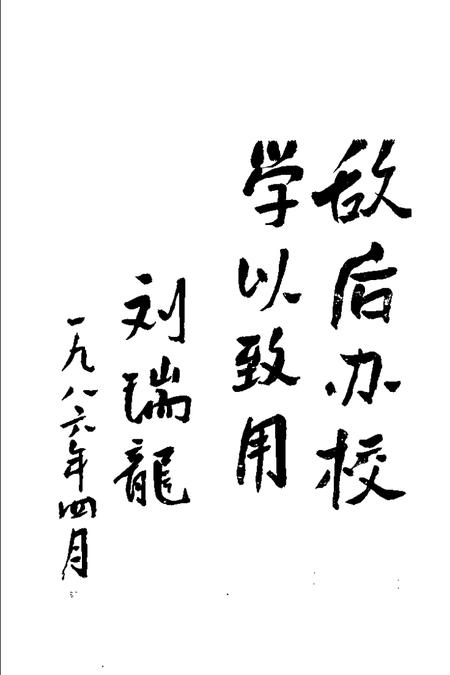 敌后办校
学以致用
刘瑞龍
一九八六年四月